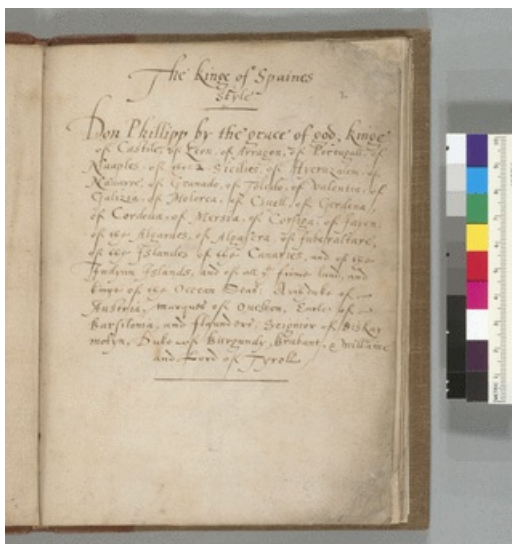 The Kinge of Spaines
Style
2.
Don Phillipp by the grace of god, kinge
of Castile, of Leon, of Arragon, of Portugall, of
Naaples, of the 2 Sicilies, of Hieruzalem, of
Navarre, of Granado, of Toledo, of Valentia, of
Galizia, of Molorca, of Civell, of Cerdena,
of Cordoua, of Mersia, of Corsiga, of Jaien,
of the Algardes, of Algasera, of Juberaltare,
of the Islandes of the Canaries, and of the
Indyan Islands, and of all y firme land, and
of the Occean Seas: Archduke of
Austria, marques of Earle of
Barsilonia, and Flaunders, Seignior of Biskay
molyn, Duke of Burgundy, Brabant, & Millaine
and Lord of Tyroll